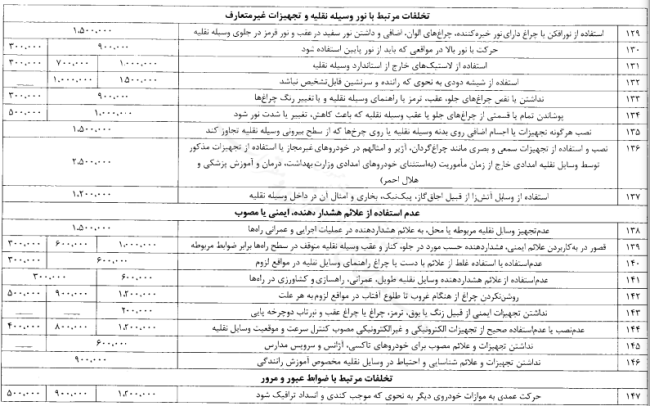 تخلفات مرتبط با نور وسیله نقلیه و تجهیزات غیرمتعارف
۱۲۹ استفاده از نورافکن یا چراغ دارای نور خیره‌کننده، چراغ‌های الوان، اضافی و داشتن نور سفید در عقب و نور قرمز در جلوی وسیله نقلیه ۱.۵۰۰.۰۰۰
۱۳۰ حرکت با نور بالا در مواقعی که باید از نور پایین استفاده شود ۹۰۰.۰۰۰ ۳۰۰.۰۰۰
۱۳۱ استفاده از لاستیک‌های خارج از استاندارد وسیله نقلیه ۱.۰۰۰.۰۰۰ ۷۰۰.۰۰۰ ۳۰۰.۰۰۰
۱۳۲ استفاده از شیشه دودی به نحوی که راننده و سرنشین قابل‌تشخیص نباشد ۱.۵۰۰.۰۰۰ ۱.۰۰۰.۰۰۰
۱۳۳ نداشتن یا نقص چراغ‌های جلو، عقب، ترمز یا راهنمای وسیله نقلیه و یا تغییر رنگ چراغ‌ها ۹۰۰.۰۰۰ ۳۰۰.۰۰۰
۱۳۴ پوشاندن تمام یا قسمتی از چراغ‌های جلو یا عقب وسیله نقلیه که باعث کاهش، تغییر یا شدت نور شود ۱.۰۰۰.۰۰۰ ۵۰۰.۰۰۰
۱۳۵ نصب هرگونه تجهیزات یا اجسام اضافی روی بدنه وسیله نقلیه یا روی چرخ‌ها که از سطح بیرونی وسیله نقلیه تجاوز کند ۱.۵۰۰.۰۰۰
۱۳۶ نصب و استفاده از تجهیزات سمعی و بصری مانند چراغ‌گردان، آژیر و امثالهم در خودروهای غیرمجاز یا استفاده از تجهیزات مذکور
توسط وسایل نقلیه امدادی خارج از زمان مأموریت (به‌استثنای خودروهای امدادی وزارت بهداشت، درمان و آموزش پزشکی و ۲.۵۰۰.۰۰۰
هلال احمر)
۱۳۷ استفاده از وسایل آتش‌زا از قبیل اجاق‌گاز، پیک‌نیک، بخاری و امثال آن در داخل وسیله نقلیه ۱.۲۰۰.۰۰۰
عدم استفاده از علائم هشدار دهنده، ایمنی یا مصوب
۱۳۸ عدم‌تجهیز وسایل نقلیه مربوطه یا محل، به علائم هشداردهنده در عملیات اجرایی و عمرانی راه‌ها ۱.۵۰۰.۰۰۰
۱۳۹ قصور در به‌کاربردن علائم ایمنی، هشداردهنده حسب مورد در جلو، کنار و عقب وسیله نقلیه متوقف در سطح راه‌ها برابر ضوابط مربوطه ۱.۰۰۰.۰۰۰ ۶۰۰.۰۰۰ ۳۰۰.۰۰۰
۱۴۰ عدم‌استفاده یا استفاده غلط از علائم با دست یا چراغ راهنمای وسایل نقلیه در مواقع لزوم ۶۰۰.۰۰۰ ۳۰۰.۰۰۰
۱۴۱ عدم‌استفاده از علائم هشداردهنده وسایل نقلیه طویل، عمرانی، راهسازی و کشاورزی در راه‌ها ۶۰۰.۰۰۰ ۳۰۰.۰۰۰
۱۴۲ روشن‌نکردن چراغ از هنگام غروب تا طلوع آفتاب در مواقع لزوم به هر علت ۱.۲۰۰.۰۰۰ ۹۰۰.۰۰۰ ۵۰۰.۰۰۰
۱۴۳ نداشتن تجهیزات ایمنی از قبیل زنگ یا بوق، ترمز، چراغ یا چراغ عقب و نورتاب دوچرخه پایی ۲۰۰.۰۰۰
۱۴۴ عدم‌نصب یا عدم‌استفاده صحیح از تجهیزات الکترونیکی و غیرالکترونیکی مصوب کنترل سرعت و موقعیت وسایل نقلیه ۱.۲۰۰.۰۰۰ ۸۰۰.۰۰۰ ۴۰۰.۰۰۰
۱۴۵ نداشتن تجهیزات و علائم مصوب برای خودروهای تاکسی، آژانس و سرویس مدارس ۶۰۰.۰۰۰
۱۴۶ نداشتن تجهیزات و علائم شناسایی و احتیاط در وسایل نقلیه مخصوص آموزش رانندگی ۹۰۰.۰۰۰
تخلفات مرتبط با ضوابط عبور و مرور
۱۴۷ حرکت عمدی به موازات خودروی دیگر به نحوی که موجب کندی و انسداد ترافیک شود ۱.۲۰۰.۰۰۰ ۹۰۰.۰۰۰ ۵۰۰.۰۰۰